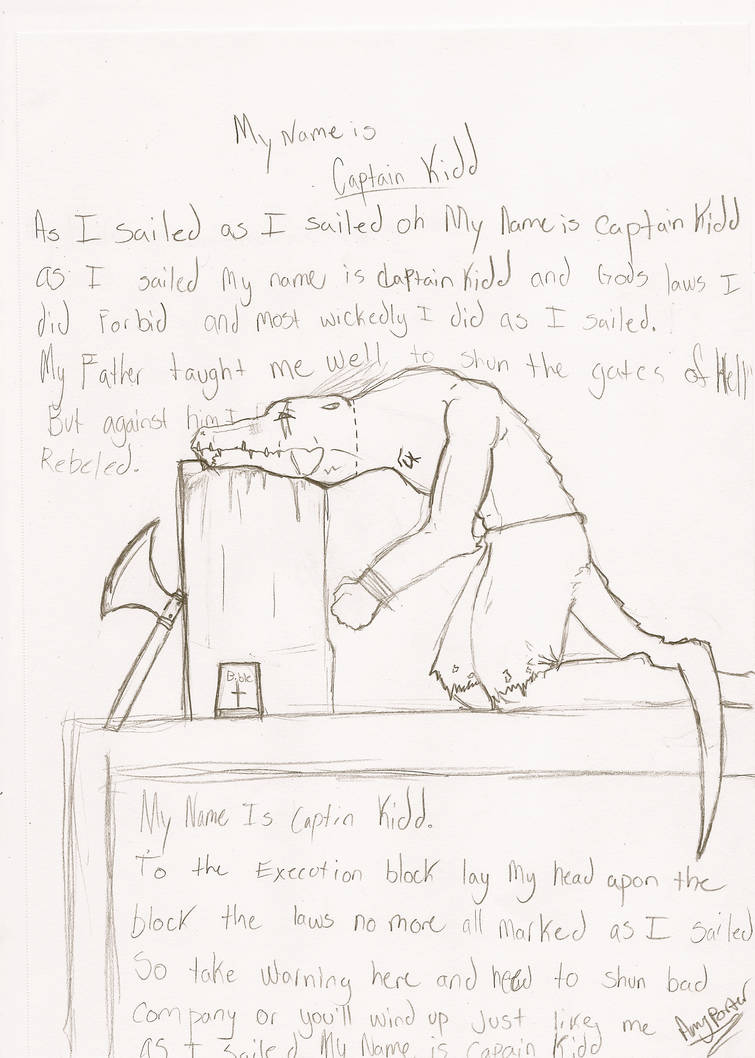 My Name is
Captain Kidd
As I sailed as I sailed oh My Name is Captain Kidd
as I sailed My name is Captain Kidd and Gods laws I
did Forbid and most wickedly I did as I sailed.
My Father taught me well to shun the gates of Hell
But against him I
Rebeled.
Bible
My Name Is Captin Kidd.
To the Execution block lay My head apon the
block the laws no more all Marked as I Sailed
So take Warning here and heed to shun bad
company or you'll wind up Just like me
as I Sailed My Name is Capain Kidd
Amy Porter